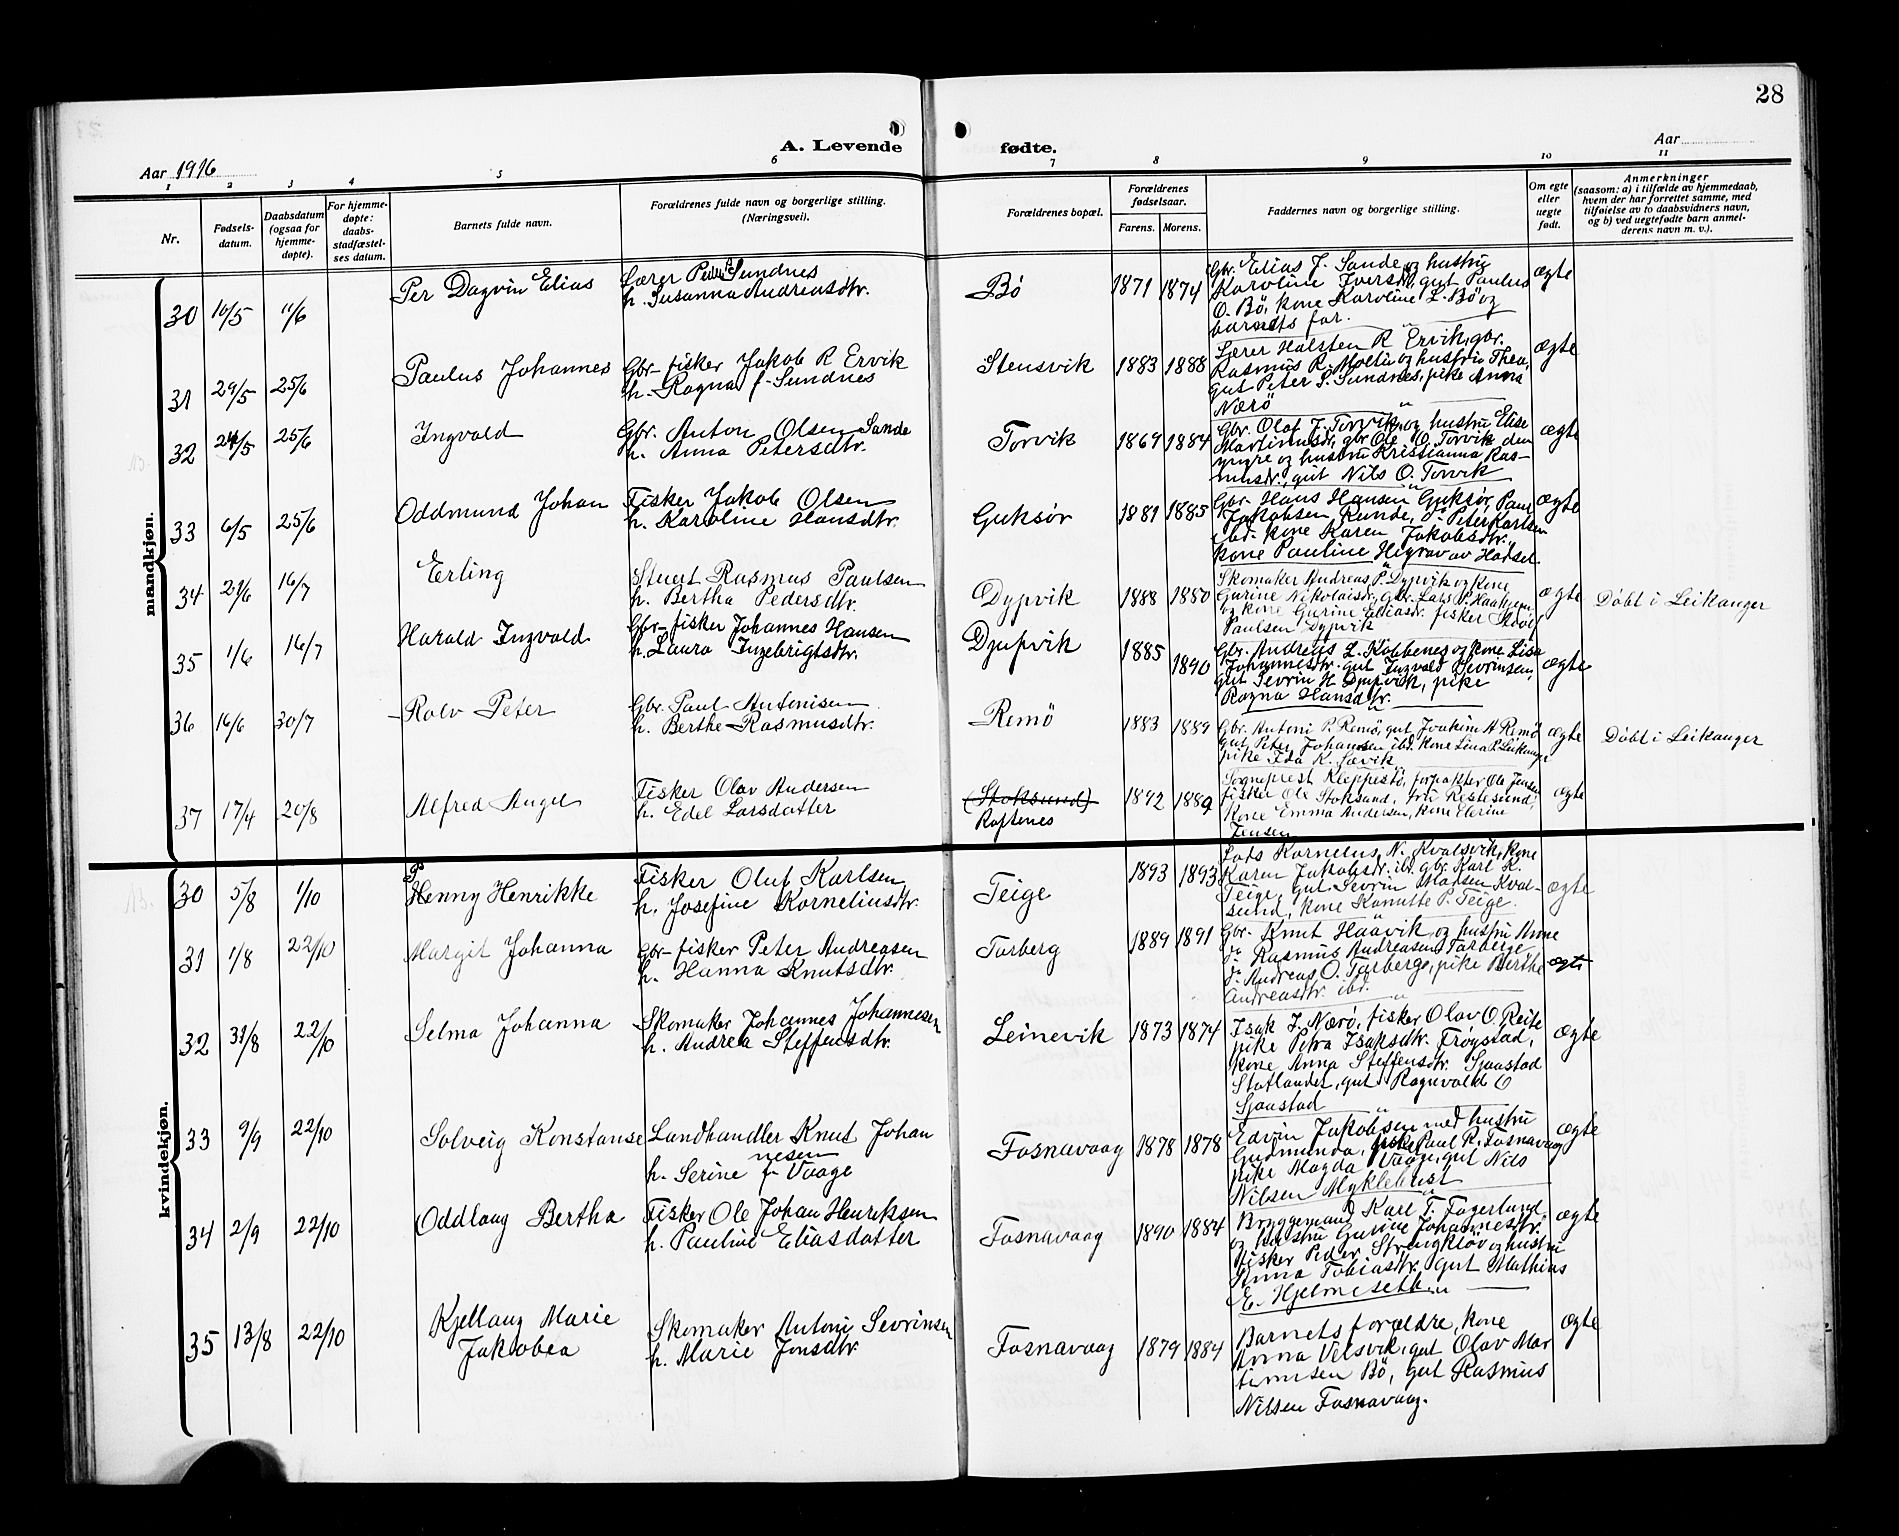 28
A. Levende fødte.
Aar 1916
Aar
1 2 3 4 5 6 7 8 9 10 11
Nr.
Fødsels-
datum.
Daabsdatum
(ogsaa for
hjemme-
døpte).
For hjemme-
døpte:
daabs-
stadfæstel-
ses datum.
Barnets fulde navn.
Forældrenes fulde navn og borgerlige stilling.
(Næringsvei).
Forældrenes bopæl.
Forældrenes
fødselsaar.
Farens. Morens.
Faddernes navn og borgerlige stilling.
Om egte
eller
uegte
født.
Anmerkninger
(saasom: a) i tilfælde av hjemmedaab,
hvem der har forrettet samme, med
tilføielse av to daabsvidners navn,
og b) ved uegtefødte barn anmel-
derens navn m. v.).
mandkjøn.
30 10/5 11/6 Per Dagvin Elias
Lærer Peder Sundnes
h. Susanna Andreasdtr.
Bö 1871 1874
Gbr. Elias J. Sande og hustru
Karoline Iversdtr, gut Paulus
O. Bö, kone Karoline L. Bö og
barnets far.
ægte
31 29/5 25/6 Paulus Johannes
Gbr-fisker Jakob R Ervik
h. Ragna f. Sundnes
Stensvik 1883 1888
Lærer Halsten R Ervik, gbr.
Rasmus R. Moltu og hustru Thea,
gut Peter S. Sundnes, pike Anna
Nærö
ægte
32 24/5 25/6 Ingvald
Gbr. Anton Olsen Sande
h. Anna Petersdtr.
Torvik 1869 1884
Gbr. Olaf J. Torvik og hustru Elise
Martinusdtr, gbr Ole O. Torvik den
yngre og hustru Kristianna Ras-
musdtr, gut Nils O. Torvik
ægte
33 6/5 25/6 Oddmund Johan
Fisker Jakob Olsen
h. Karoline Hansdtr.
Guksör 1881 1885
Gbr. Hans Hansen Guksör, Paul
Jakobsen Runde, do Peter Karlsen
ibd. kone Karen Jakobsdtr.,
kone Pauline Higrav av Hadsel
ægte
34 21/6 16/7 Erling
Stuert Rasmus Paulsen
h. Bertha Pedersdtr.
Dypvik 1888 1880
Skomaker Andreas P. Dypvik og kone
Gurine Nikolaisdr, gbr. Lars P. Haakjem
og kone Gurine Eliasdr. fisker
Paulsen Dypvik
ægte Döbt i Leikanger
35 1/6 16/7 Harald Ingvald
Gbr-fisker Johannes Hansen
h. Laura Ingebrigtsdtr.
Djupvik 1885 1890
Gbr. Andreas L. Kobbenes og kone Lisa
Johannesdtr. gut Ingvald Sevrinsen,
gut Sevrin H Djupvik, pike
Ragna Hansdtr.
ægte
36 16/6 30/7 Rolv Peter
Gbr. Paul Antonisen
h. Berthe Rasmusdtr.
Remö 1883 1889
Gbr. Antoni P. Remö, gut Joakim A Remö
gut Peter Johansen ibd. kone Lina P. Leikanger
pike Ida K. Sævik
ægte Döbt i Leikanger
37 17/4 20/8 Alfred Angel
Fisker Olav Andersen
h. Edel Larsdatter
(Stoksund)
Raftenes
1892 1889
Sogneprest Kleppestö, forpakter Ole Jensen
fisker Ole Stoksund, fru Ristesund,
kone Emma Andersen, kone Elerine
Jensen
ægte
kvindekjøn.
30 5/8 1/10 Henny Henrikke
Fisker Oluf Karlsen
h. Josefine Korneliusdtr.
Teige 1893 1893
Lods Kornelius N. Kvalsvik, kone
Karen Jakobsdtr. ibd. gbr. Karl K.
Teige, gut Sevrin Madsen Kval-
sund, kone Kanutte P. Teige.
ægte
31 1/8 22/10 Margit Johanna
Gbr-fisker Peter Andreasen
h. Hanna Knutsdtr.
Tarberg 1889 1891
Gbr. Knut Haavik og hustru Anne
do Rasmus Andreasen Tarberge
do Andreas O. Tarberge, pike Berthe
Andreasdtr. ibd.
ægte
32 31/8 22/10 Selma Johanna
Skomaker Johannes Johannesen
h. Andrea Steffensdtr.
Leinevik 1873 1874
Isak J. Nærö, fisker Olav O. Reite
pike Petra Isaksdtr. Frøystad,
kone Anna Steffensdtr. Sjaastad
Statlandet, gut Ragnvald O
Sjaastad
ægte
33 9/9 22/10 Solveig Konstanse
Landhandler Knut Johan
nesen
h. Serine f. Vaage
Fosnavaag 1878 1878
Edvin Jakobsen med hustru
Gudmunda, fisker Paul R. Fosnavaag
pike Magda Vaage, gut Nils
Nilsen Myklebust
ægte
34 2/9 22/10 Oddlaug Bertha
Fisker Ole Johan Henriksen
h. Pauline Eliasdatter
Fosnavaag 1890 1884
Bryggemand Karl T. Fagerlund
og hustru Gurine Johannesdtr.
fisker Peder Strengklöv og hustru
Anna Tobiasdtr. gut Mathias
E. Hjelmeseth
ægte
35 13/8 22/10 Kjellaug Marie
Jakobea
Skomaker Antoni Sevrinsen
h. Marie Jonsdtr.
Fosnavaag 1879 1884
Barnets forældre, kone
Anna Velsvik, gut Olav Mar
tinusen Bö, gut Rasmus
Nilsen Fosnavaag.
ægte